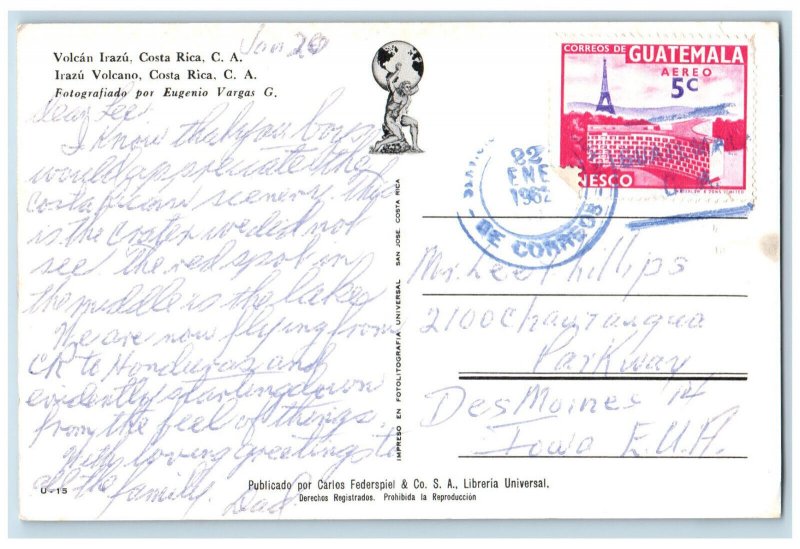 Volcán Irazú, Costa Rica, C. A.
Irazú Volcano, Costa Rica, C. A.
Fotografiado por Eugenio Vargas G.
Jan 20
Dear Lee
I know that you boys
would appreciate the
Costa Rican scenery. this
is the crater we did not
see the red spot in
the middle is the lake
We are now flying from
CR to Honduras and
evidently starting down
from the feel of things.
With loving greetings to
all the family. Dad
U-15
IMPRESO EN FOTOLITOGRAFIA UNIVERSAL SAN JOSE, COSTA RICA
CORREOS DE GUATEMALA
AEREO
5c
UNESCO
22
ENE
1962
DE CORREOS
Mr. Lee Phillips
2100 Chautauqua
Parkway
Des Moines 14
Iowa E.U.A.
Publicado por Carlos Federspiel & Co. S. A., Librería Universal.
Derechos Registrados. Prohibida la Reproducción